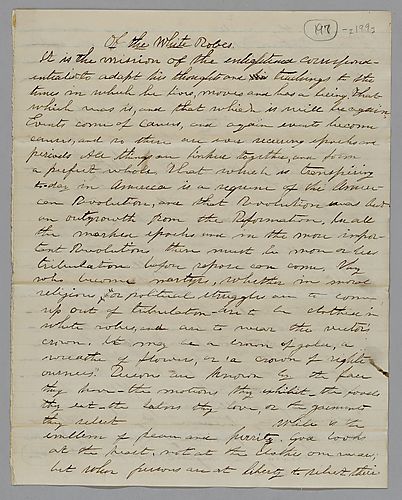 197 - 2199
Of the White Robes.
It is the mission of the enlightened correspond-
ential to adapt his thought and his teachings to the
times in which he lives, moves and has a being. That
which was is, and that which is will be again
Events come of causes, and again events become
causes, and so there are ever recurring epochs and
periods All things are linked together, and form
a perfect whole. That which is transpiring
to-day in America is a sequence of the Ameri-
can Revolution, and that Revolution was but
an outgrowth from the Reformation. In all
the marked epochs and in the more impor-
tant Revolutions there must be more or less
tribulation before repose can come. They
who become martyrs, whether in moral
religious, or political struggles are to come
up out of tribulation are to be clothed in
white robes, and are to wear the victor's
crown. It may be a crown of gold, a
wreathe of flowers, or "a crown of right-
eousness." Persons are known by the face
they have the motions they exhibit the roads
they the labors they love, or the garment
they select White is the
emblem of peace and purity. God looks
at the heart, not at the clothes one wears;
but when persons are at liberty to select their